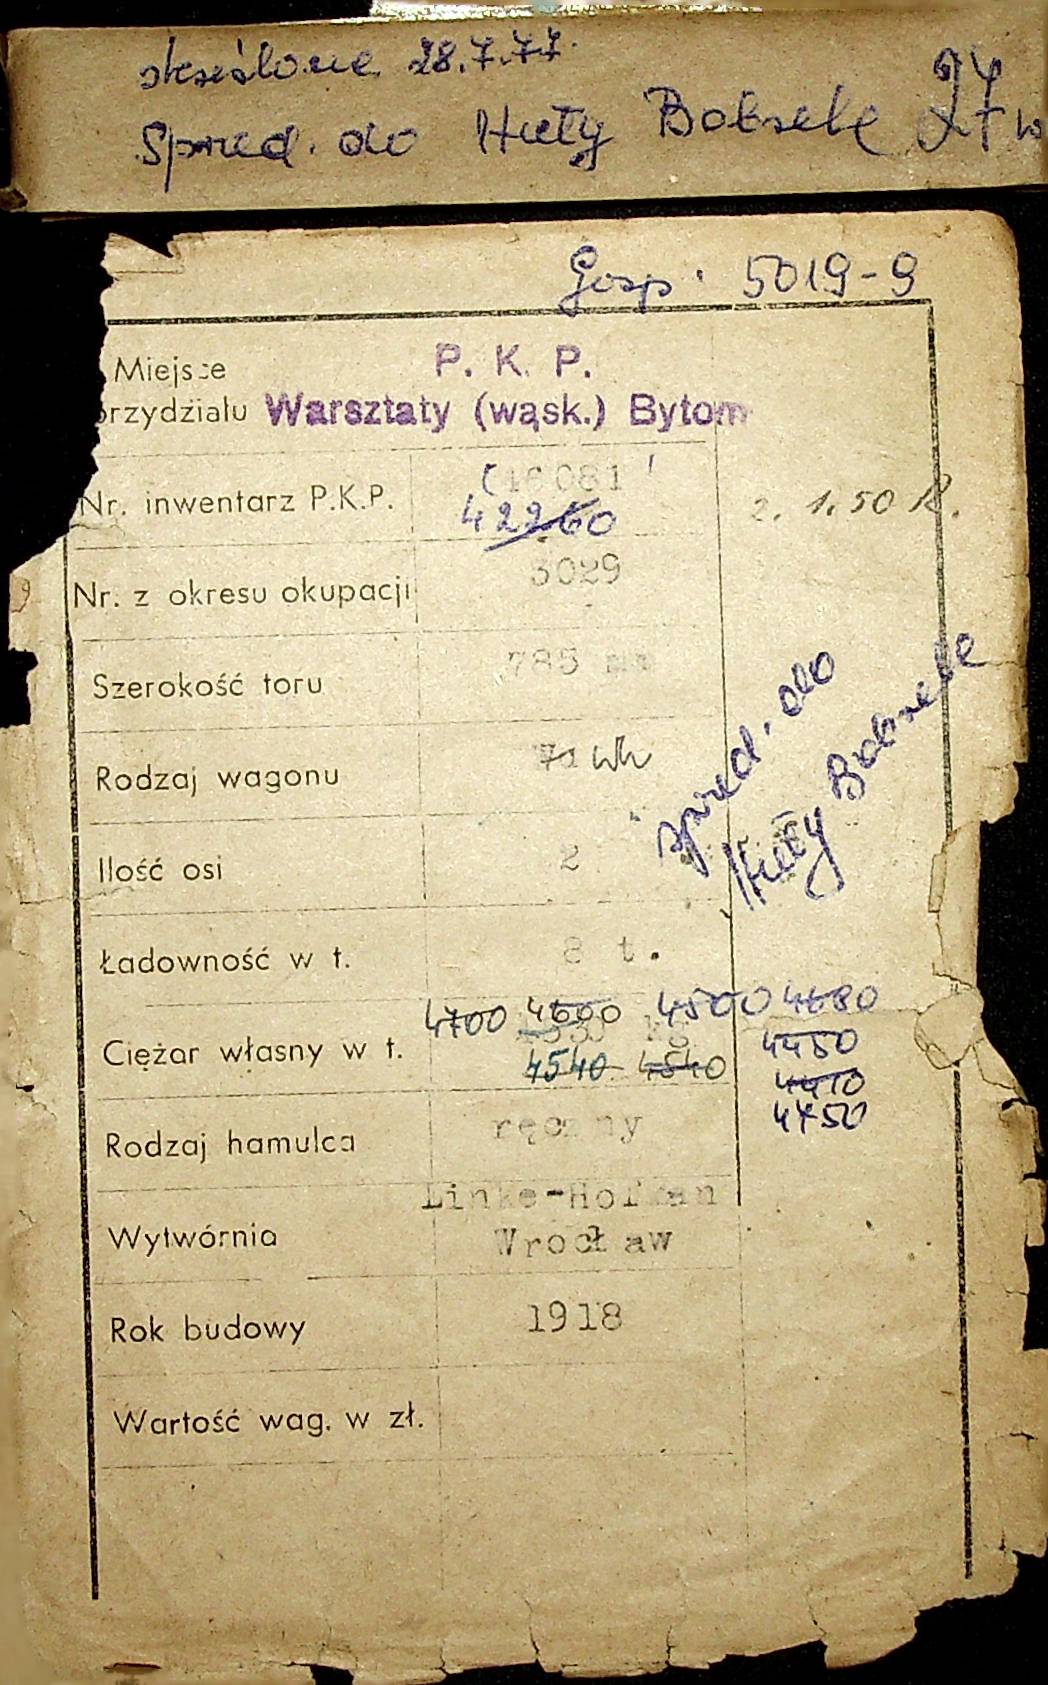 skreślone 28.7.77.
Sprzed. do Huty Bobrek
Gosp. 5019-9
Miejsce P. K. P.
przydziału Warsztaty (wąsk.) Bytom
(16081)
Nr. inwentarz P.K.P. 42260 2. 1.50 R.
Nr. z okresu okupacji 3029
Szerokość toru 785 mm
Rodzaj wagonu Wh
sprzed. do
Huty Bobrek
Ilość osi 2
Ładowność w t. 8 t.
4700 4600 4500 4680
Ciężar własny w t. 4450
4540 4540 4410
4450
Rodzaj hamulca ręczny
Linke-Hofman
Wytwórnia Wrocław
Rok budowy 1918
Wartość wag. w zł.